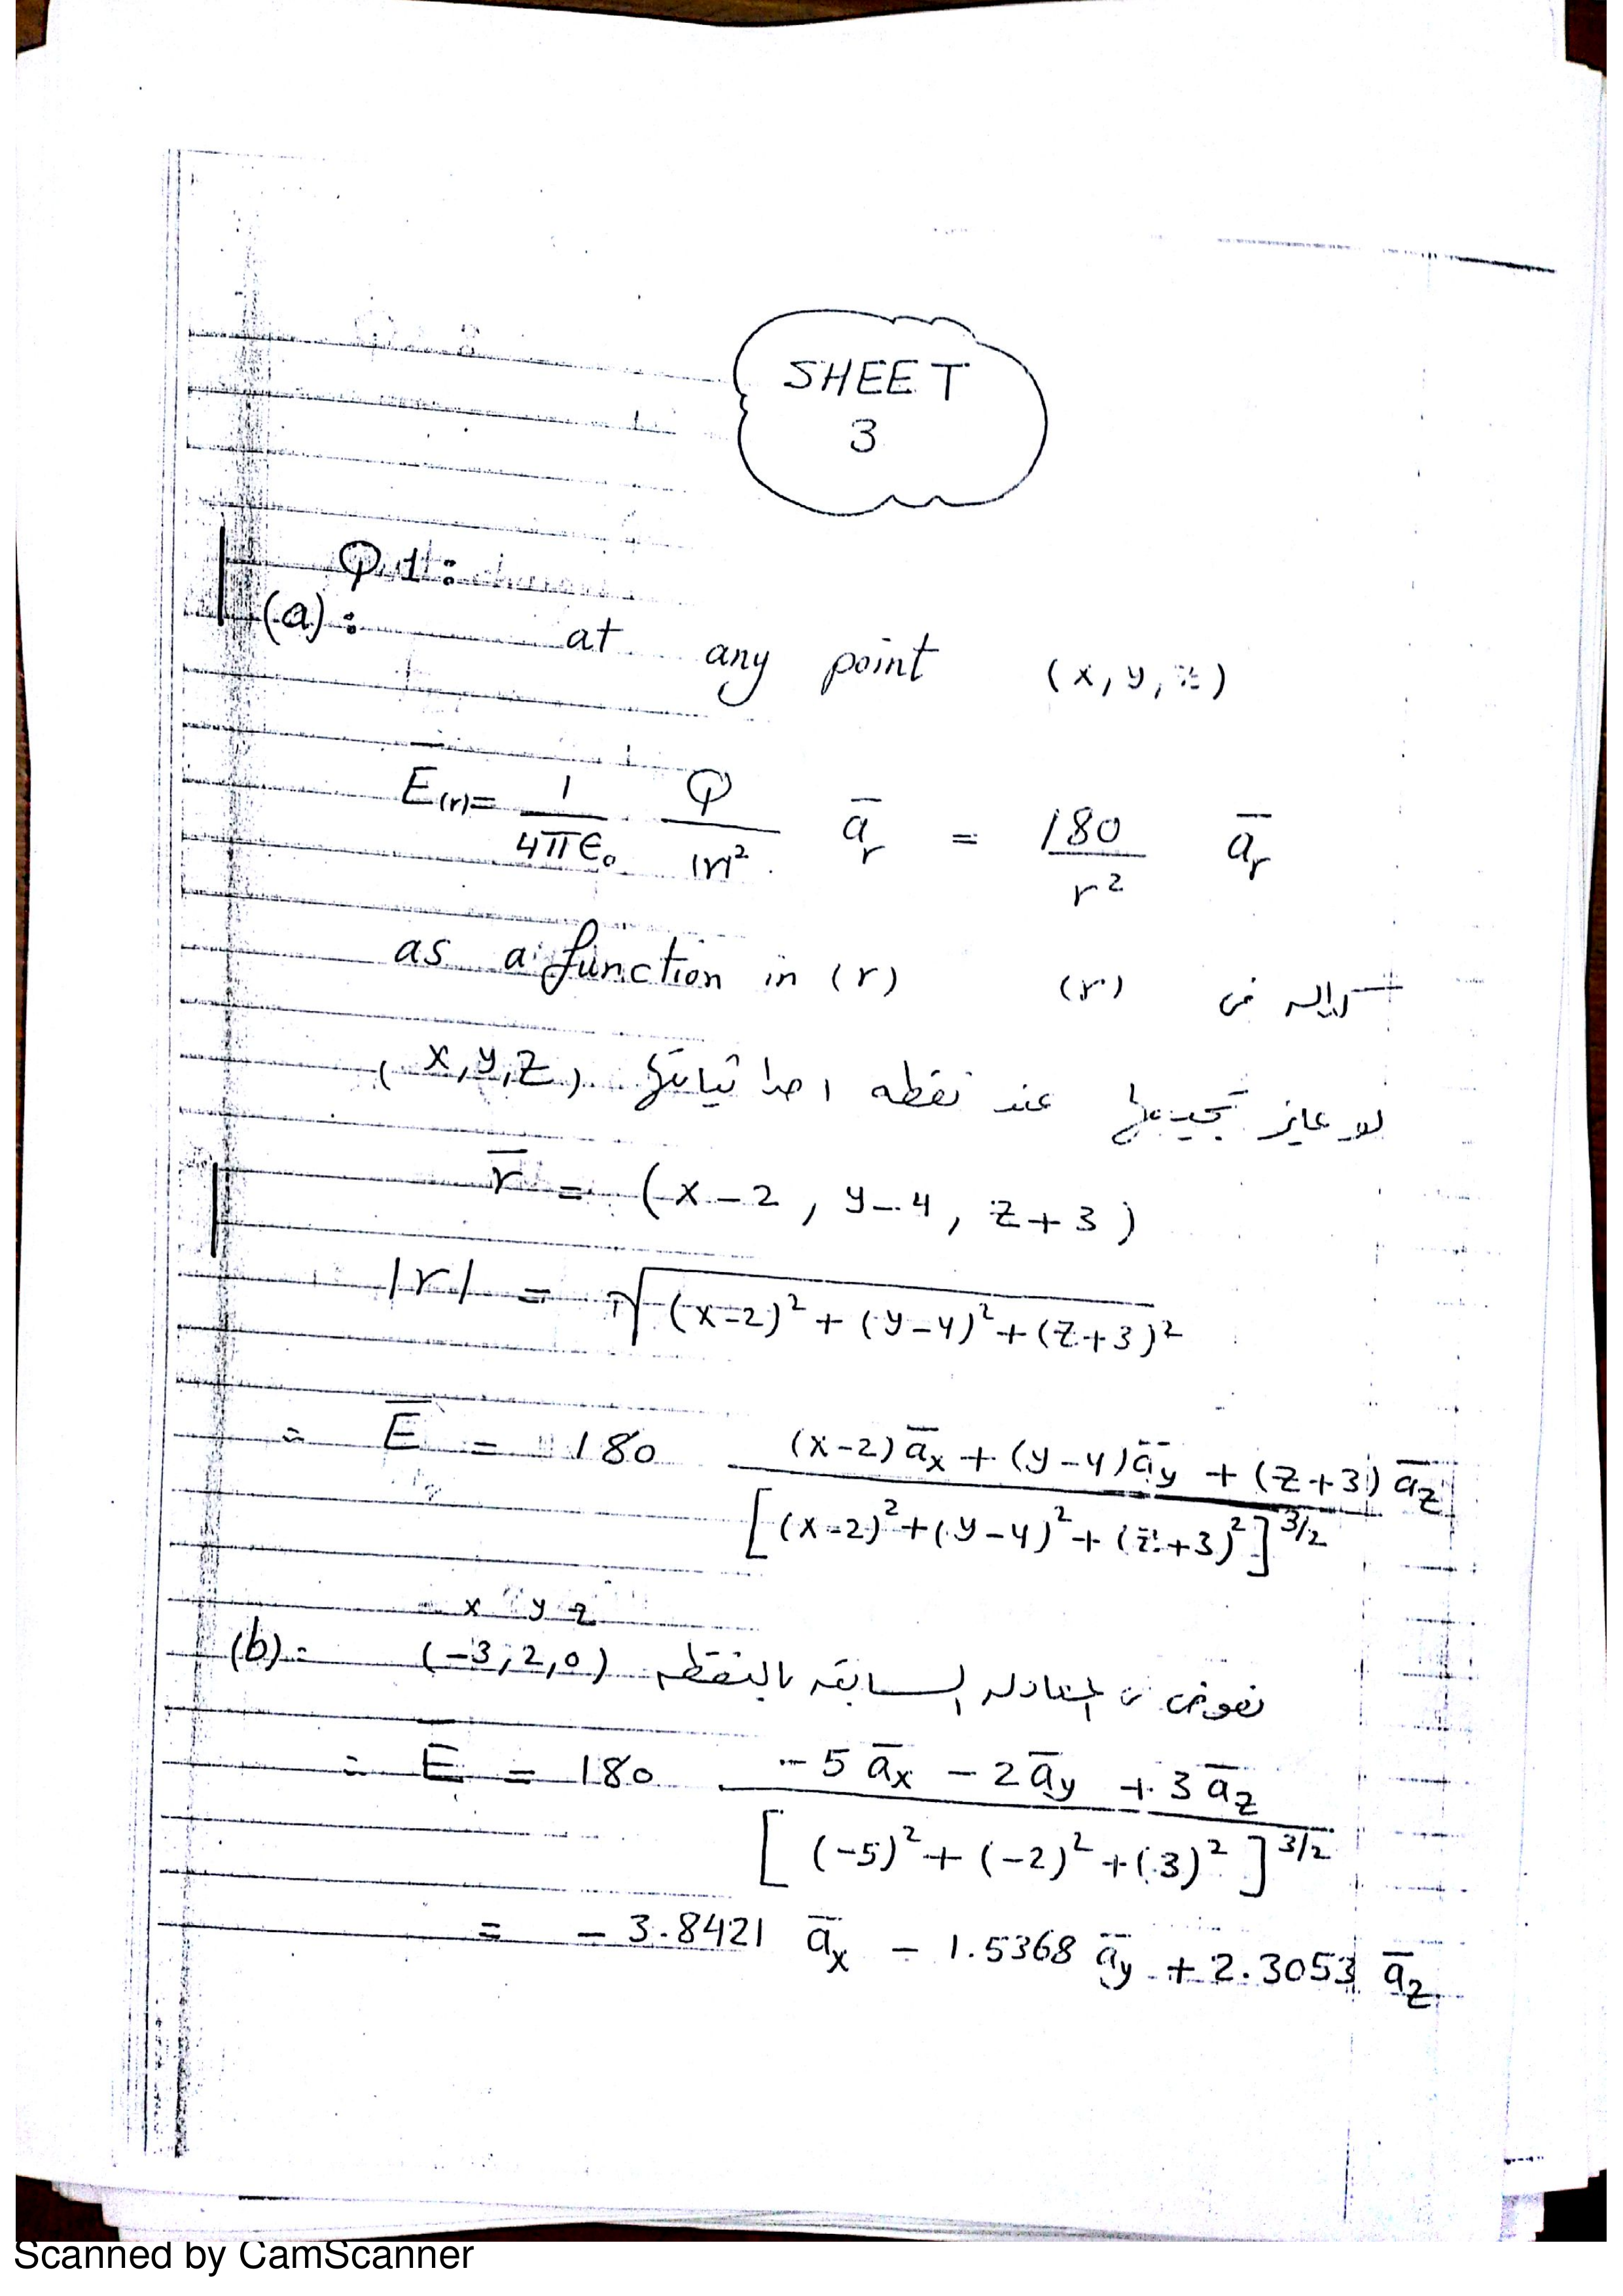 SHEET
3
Q1:
(a): at any point (x, y, z)
E̅(r) = 1/4πϵ₀ · Q/|r|² a̅r = 180/r² a̅r
as a function in (r) (r) كداله فى
لو عايز تجيبها عند نقطه احداثياتها (x, y, z)
r̅ = (x-2, y-4, z+3)
|r| = √(x-2)² + (y-4)² + (z+3)²
∴ E̅ = 180 (x-2) a̅x + (y-4) a̅y + (z+3) a̅z / [(x-2)² + (y-4)² + (z+3)²]^3/2
x y z
(b):- (-3, 2, 0) نعوض فى المعادله السابقه بالنقطه
∴ E̅ = 180 -5 a̅x - 2 a̅y + 3 a̅z / [(-5)² + (-2)² + (3)²]^3/2
= - 3.8421 a̅x - 1.5368 a̅y + 2.3053 a̅z
Scanned by CamScanner